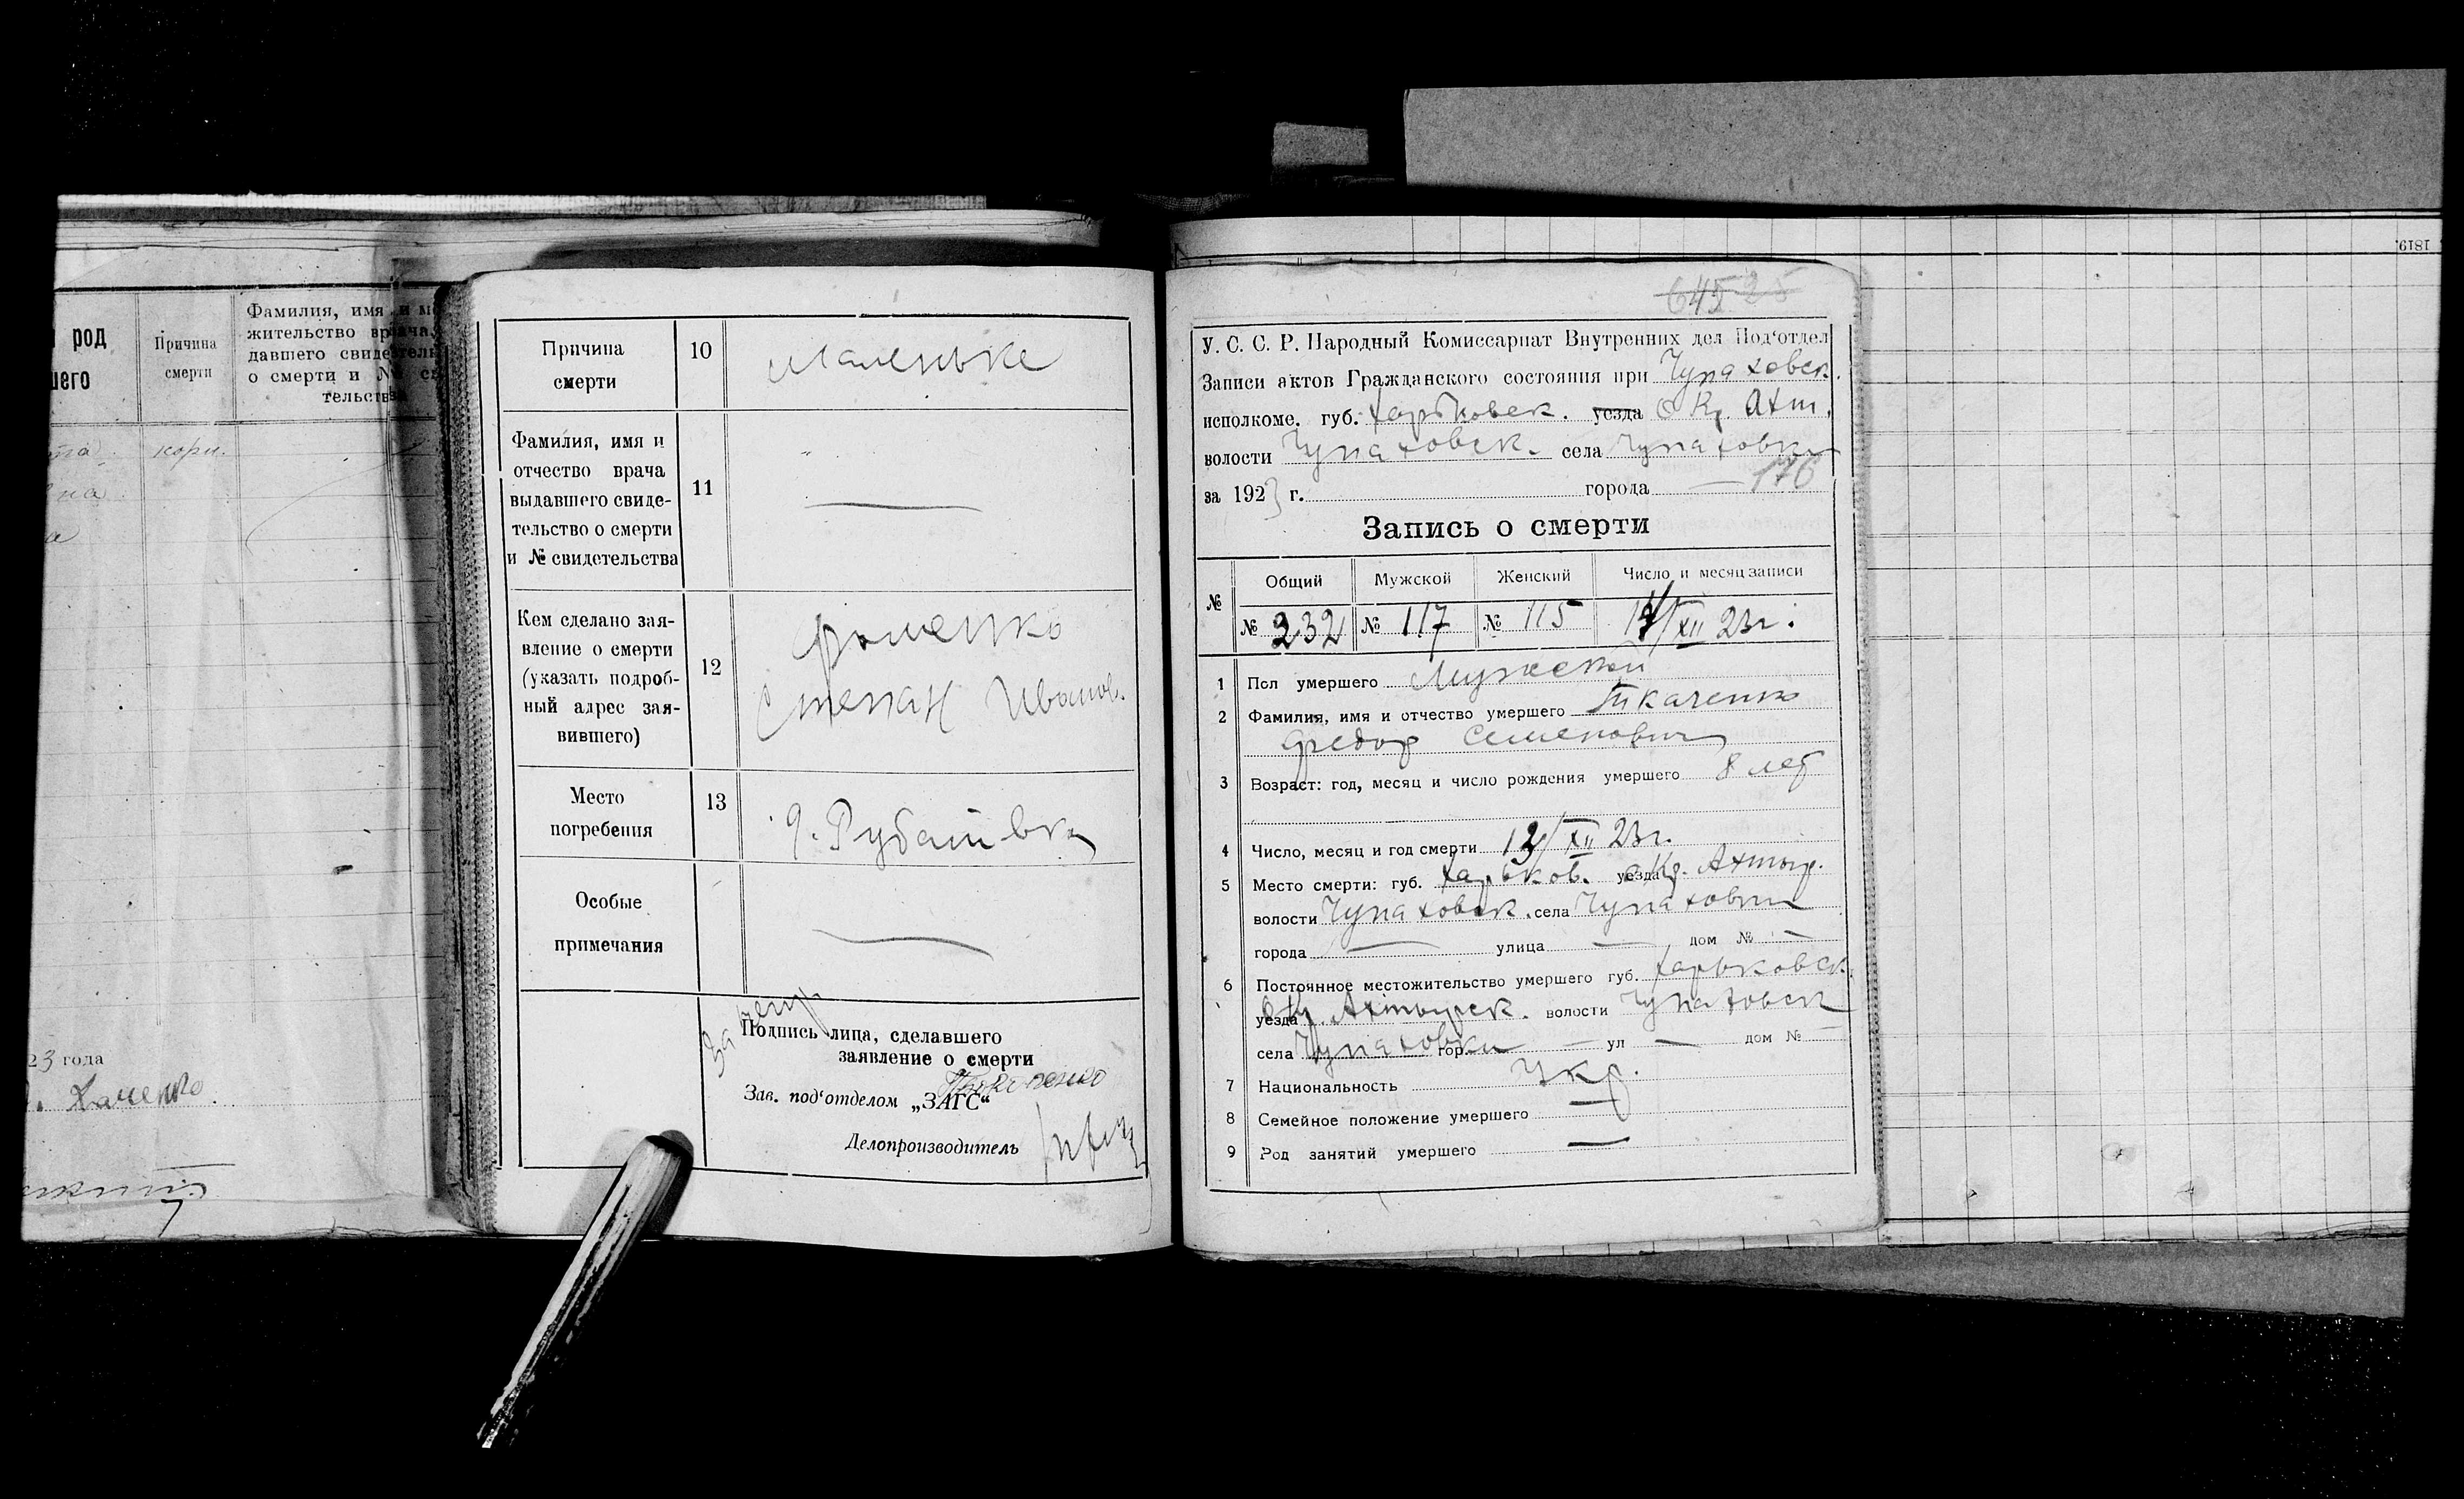 род
шего
Причина
смерти
Фамилия, имя и
жительство врача,
давшего свидетель
о смерти и №
тельства
кори.
23 года
Причина
смерти
10
Маленьке
Фамилия, имя и
отчество врача
выдавшего свиде-
тельство о смерти
и № свидетельства
11
Кем сделано зая-
вление о смерти
(указать подроб-
ный адрес зая-
вившего)
12
Фоменко
Степан Иванов.
Место
погребения
13
Особые
примечания
Подпись лица, сделавшего
заявление о смерти
Зав. под‘отделом „ЗАГС“
Делопроизводитель
1819
645
У. С. С. Р. Народный Комиссариат Внутренних дел Под‘отдел
Записи актов Гражданского состояния при Чупаховск.
исполкоме. губ. Харьковск. уезда Окр. Ахт.
волости Чупаховск. села Чупаховки
за 1923 г. города — 176
Запись о смерти
№ Общий Мужской Женский Число и месяц записи
№ 232 № 117 № 115 14/XII 23г.
1 Пол умершего Мужской
2 Фамилия, имя и отчество умершего Ткаченко
Федор Семенович
3 Возраст: год, месяц и число рождения умершего 8 лет
4 Число, месяц и год смерти 13/XII 23г.
5 Место смерти: губ. Харьков. уезда Окр. Ахтыр.
волости Чупаховск. села Чупаховки
города — улица — дом № —
6 Постоянное местожительство умершего губ. Харьковск.
уезда Окр. Ахтырск. волости Чупаховск
села Чупаховки гор. — ул — дом № —
7 Национальность Укр.
8 Семейное положение умершего —
9 Род занятий умершего —